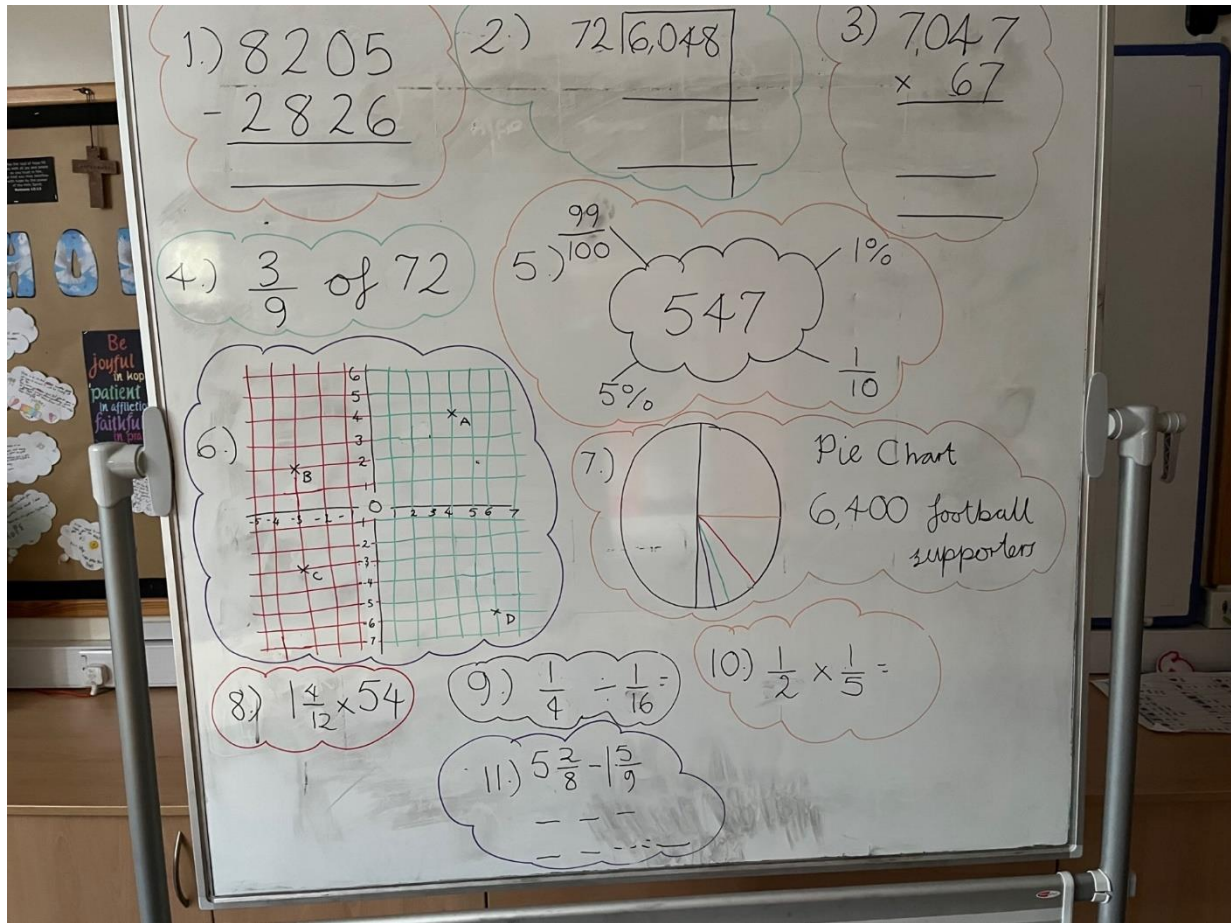 1.) 8205
- 2826
2.) 72 6,048
3.) 7,047
× 67
4.) 3/9 of 72
5.) 99/100
1%
547
5%
1/10
6.)
6
5
4
3
2
1
A
B
-5 -4 -3 -2 -1 0 2 3 4 5 6 7
1
2
-3
-4
5
6
7
C
D
7.) Pie Chart
6,400 football
supporters
8.) 1 4/12 × 54
9.) 1/4 ÷ 1/16 =
10.) 1/2 × 1/5 =
11.) 5 2/8 - 1 5/9
HO
Be
joyful
in hop
patient
in afflictio
faithful
in pra